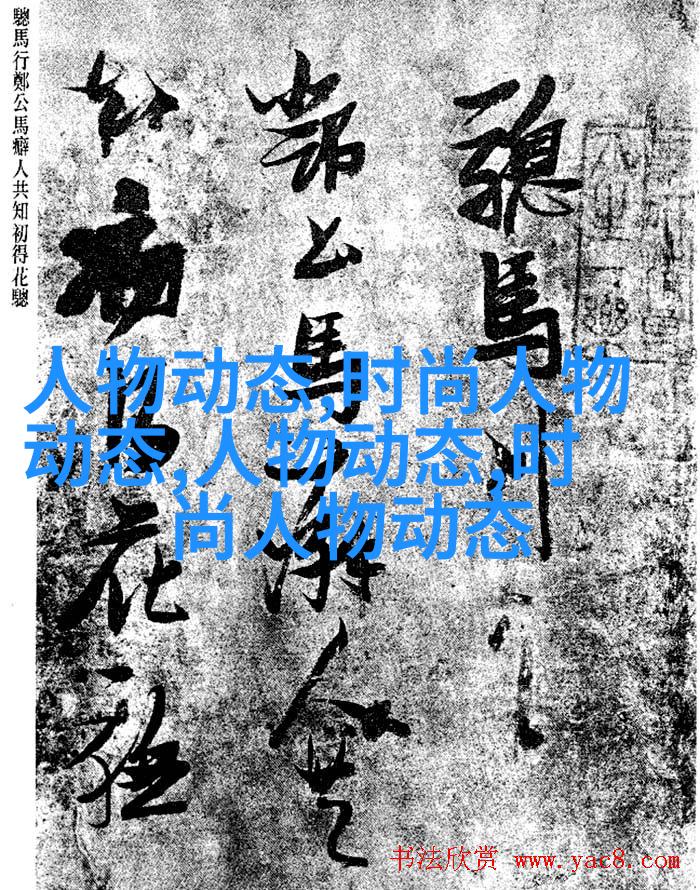 驄馬行
鄭公馬癖人共
知初得花驄
驄馬行鄭公馬癖人共知初得花驄
人物动态,时尚人物
动态,人物动态,时
尚人物动态
书法欣赏 www.yac8.com